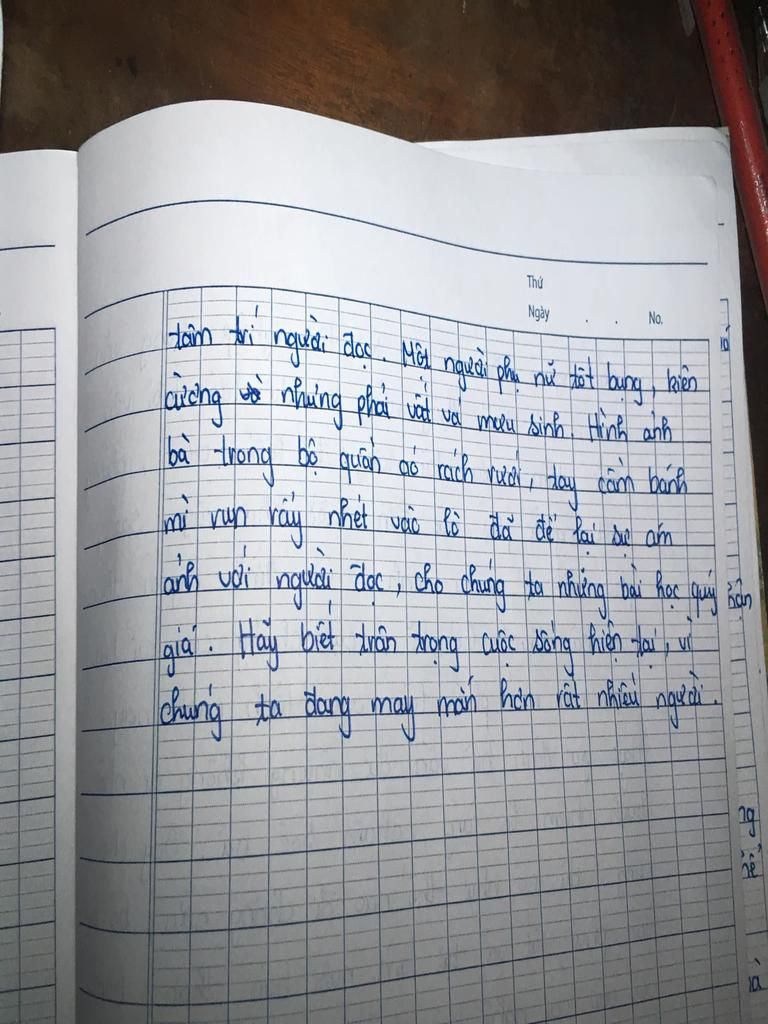 Thứ
Ngày . . No.
tâm trí người đọc. Một người phụ nữ tốt bụng, kiên
cường nhưng phải vất vả mưu sinh. Hình ảnh
bà trong bộ quần áo rách rưới, tay cầm bánh
mì run rẩy nhét vào lò đã để lại sự ám
ảnh với người đọc, cho chúng ta những bài học quý
giá. Hãy biết trân trọng cuộc sống hiện tại, vì
chúng ta đang may mắn hơn rất nhiều người.